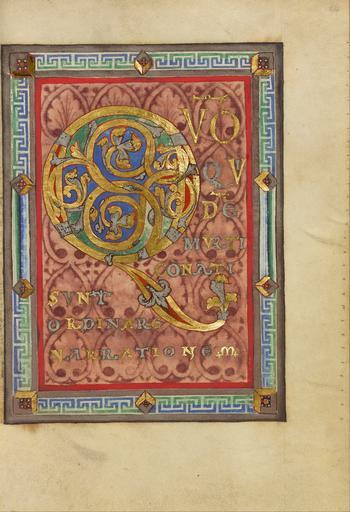 QVŌ
QV
DĒ
MVLTI
CONATI
SVNT
ORDINARE
NARRATIONEM